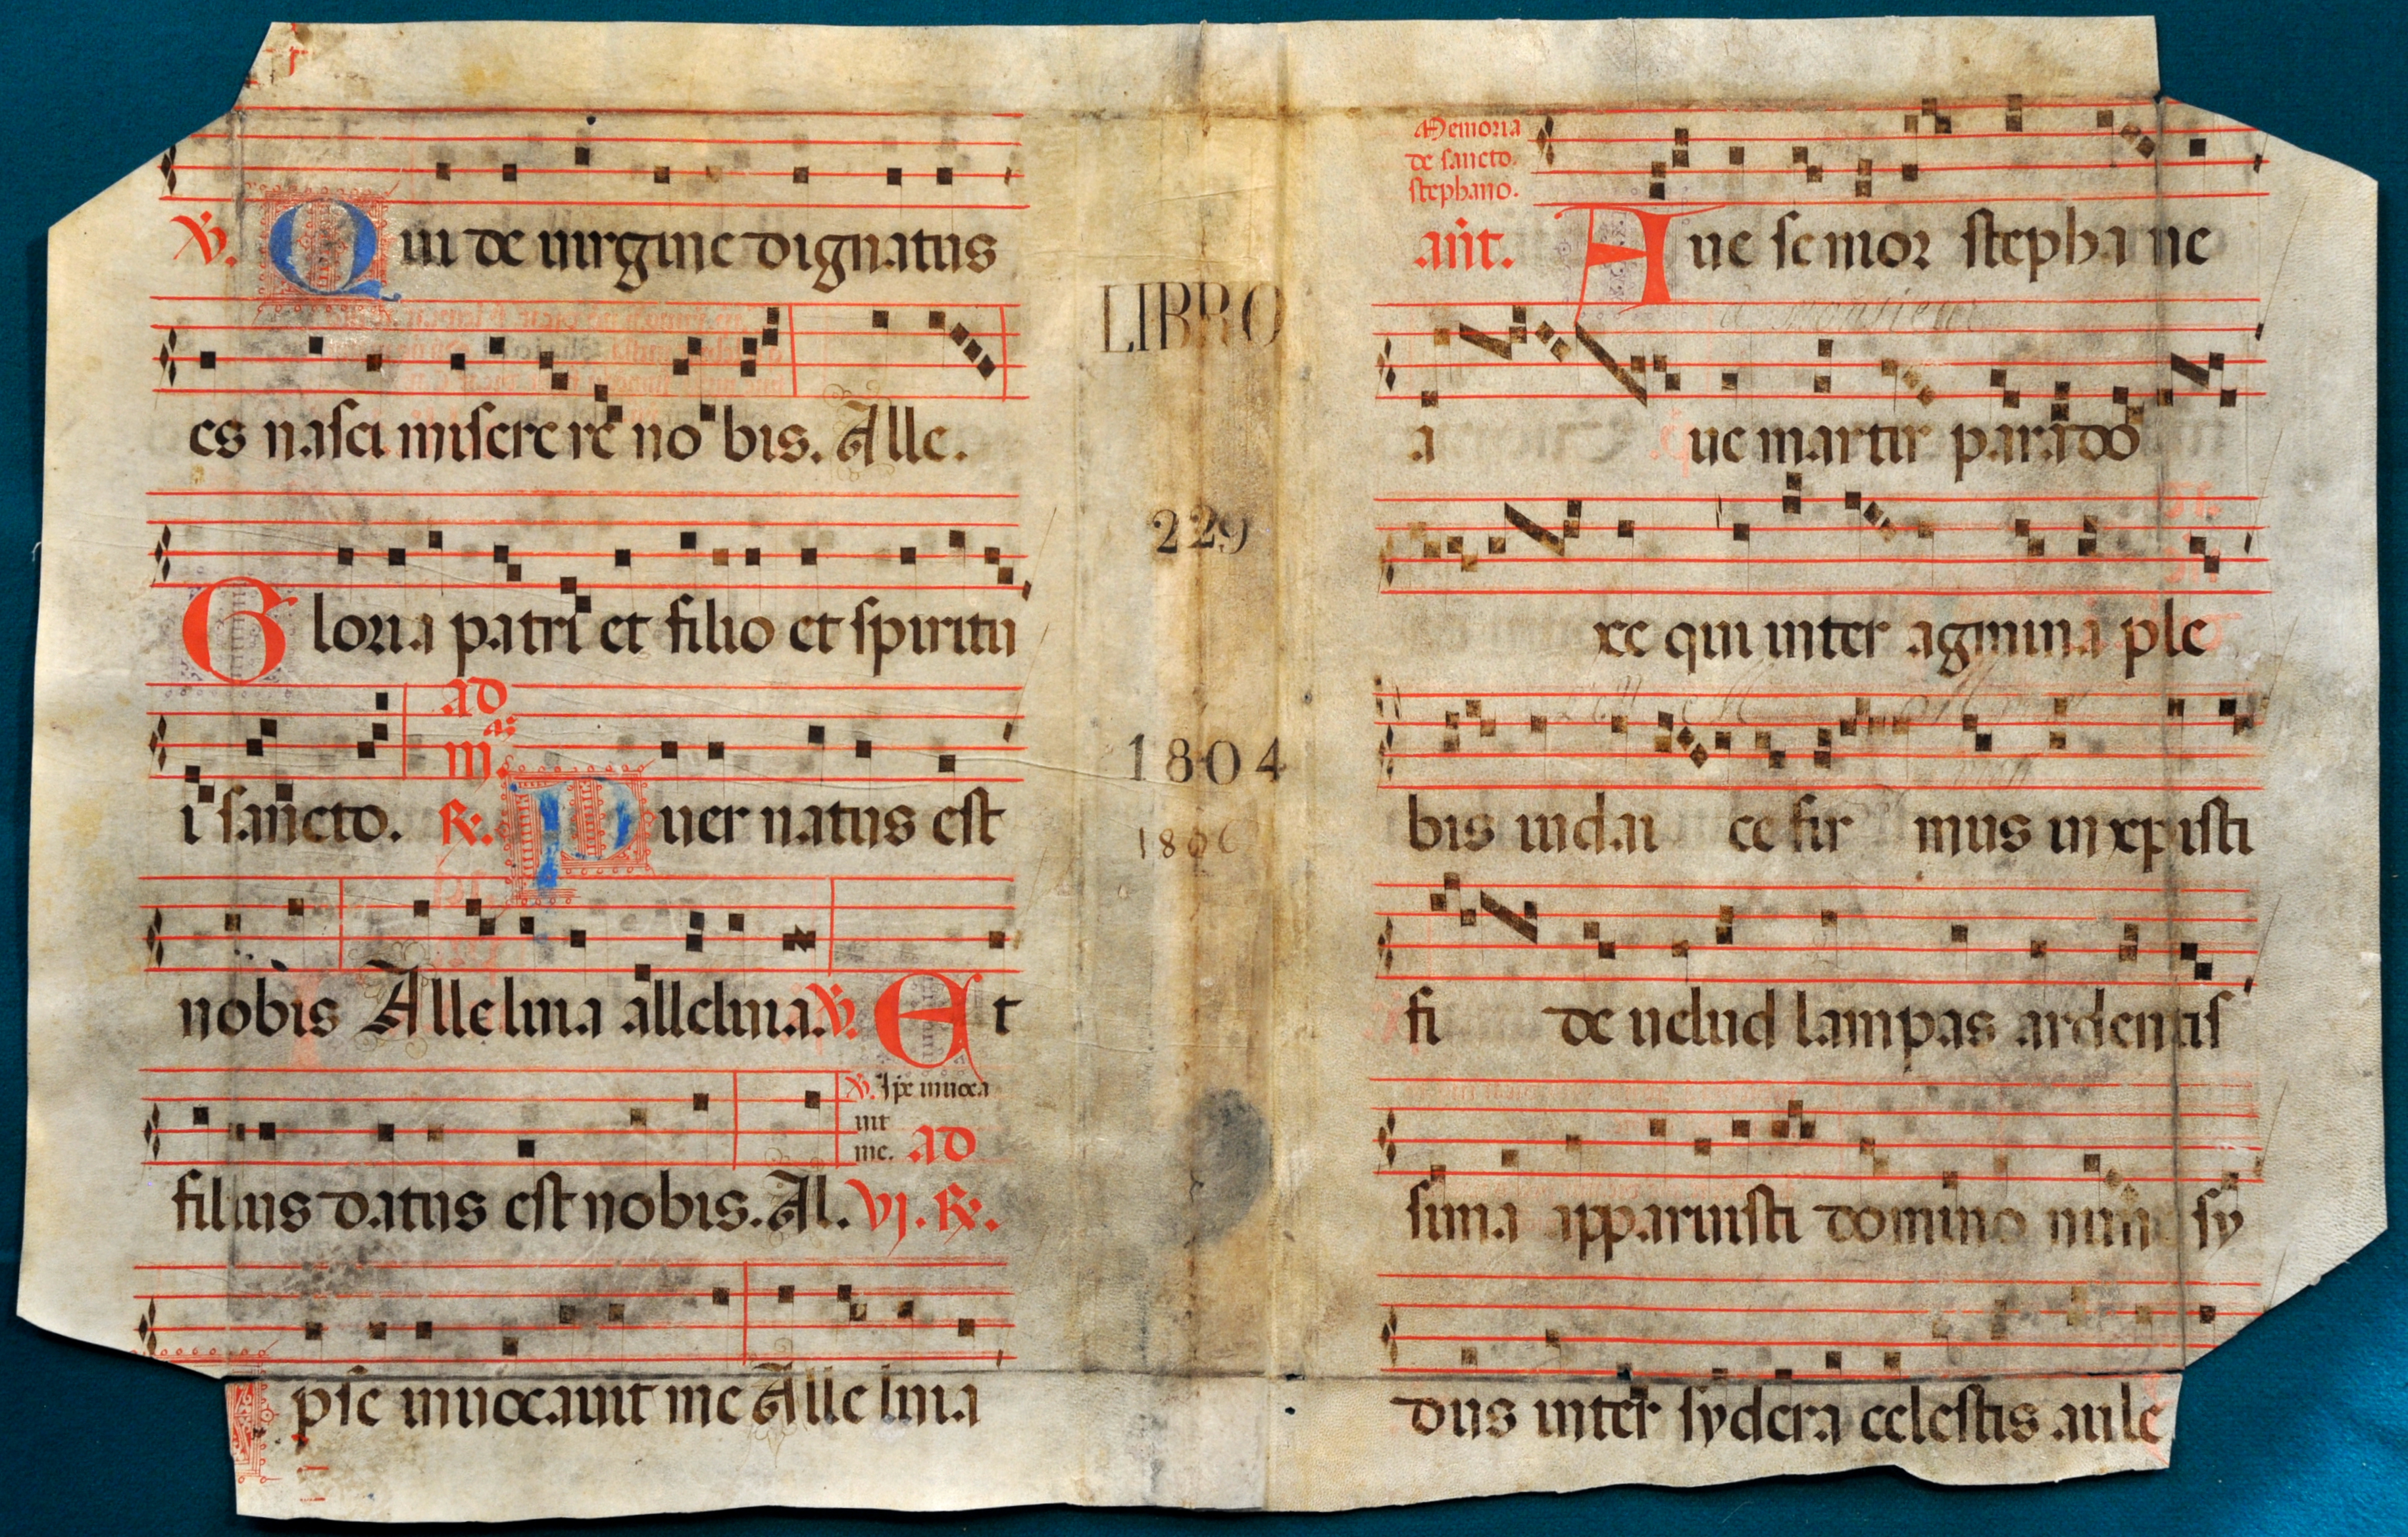 ℣. Qui de uirgine dignatus
es nasci miserere nobis. Alle.
Gloria patri et filio et spiritu
i sancto. ad mª. ℟. Puer natus est
nobis Alleluia alleluia. ℣. Et
filius datus est nobis. Al. ℣. Ipẽ inuoca
uit
me. ad
VI. ℟.
Ipse inuocauit me Alleluia
LIBRO
229
1804
Memoria
de sancto.
stephano.
añt. Aue senior stephane
aue martir parado
xe qui inter agmina ple
bis iudaice firmus in xpisti
fide uelud lampas ardentis
sima apparuisti domino sy
dus inter sydera celestis aule